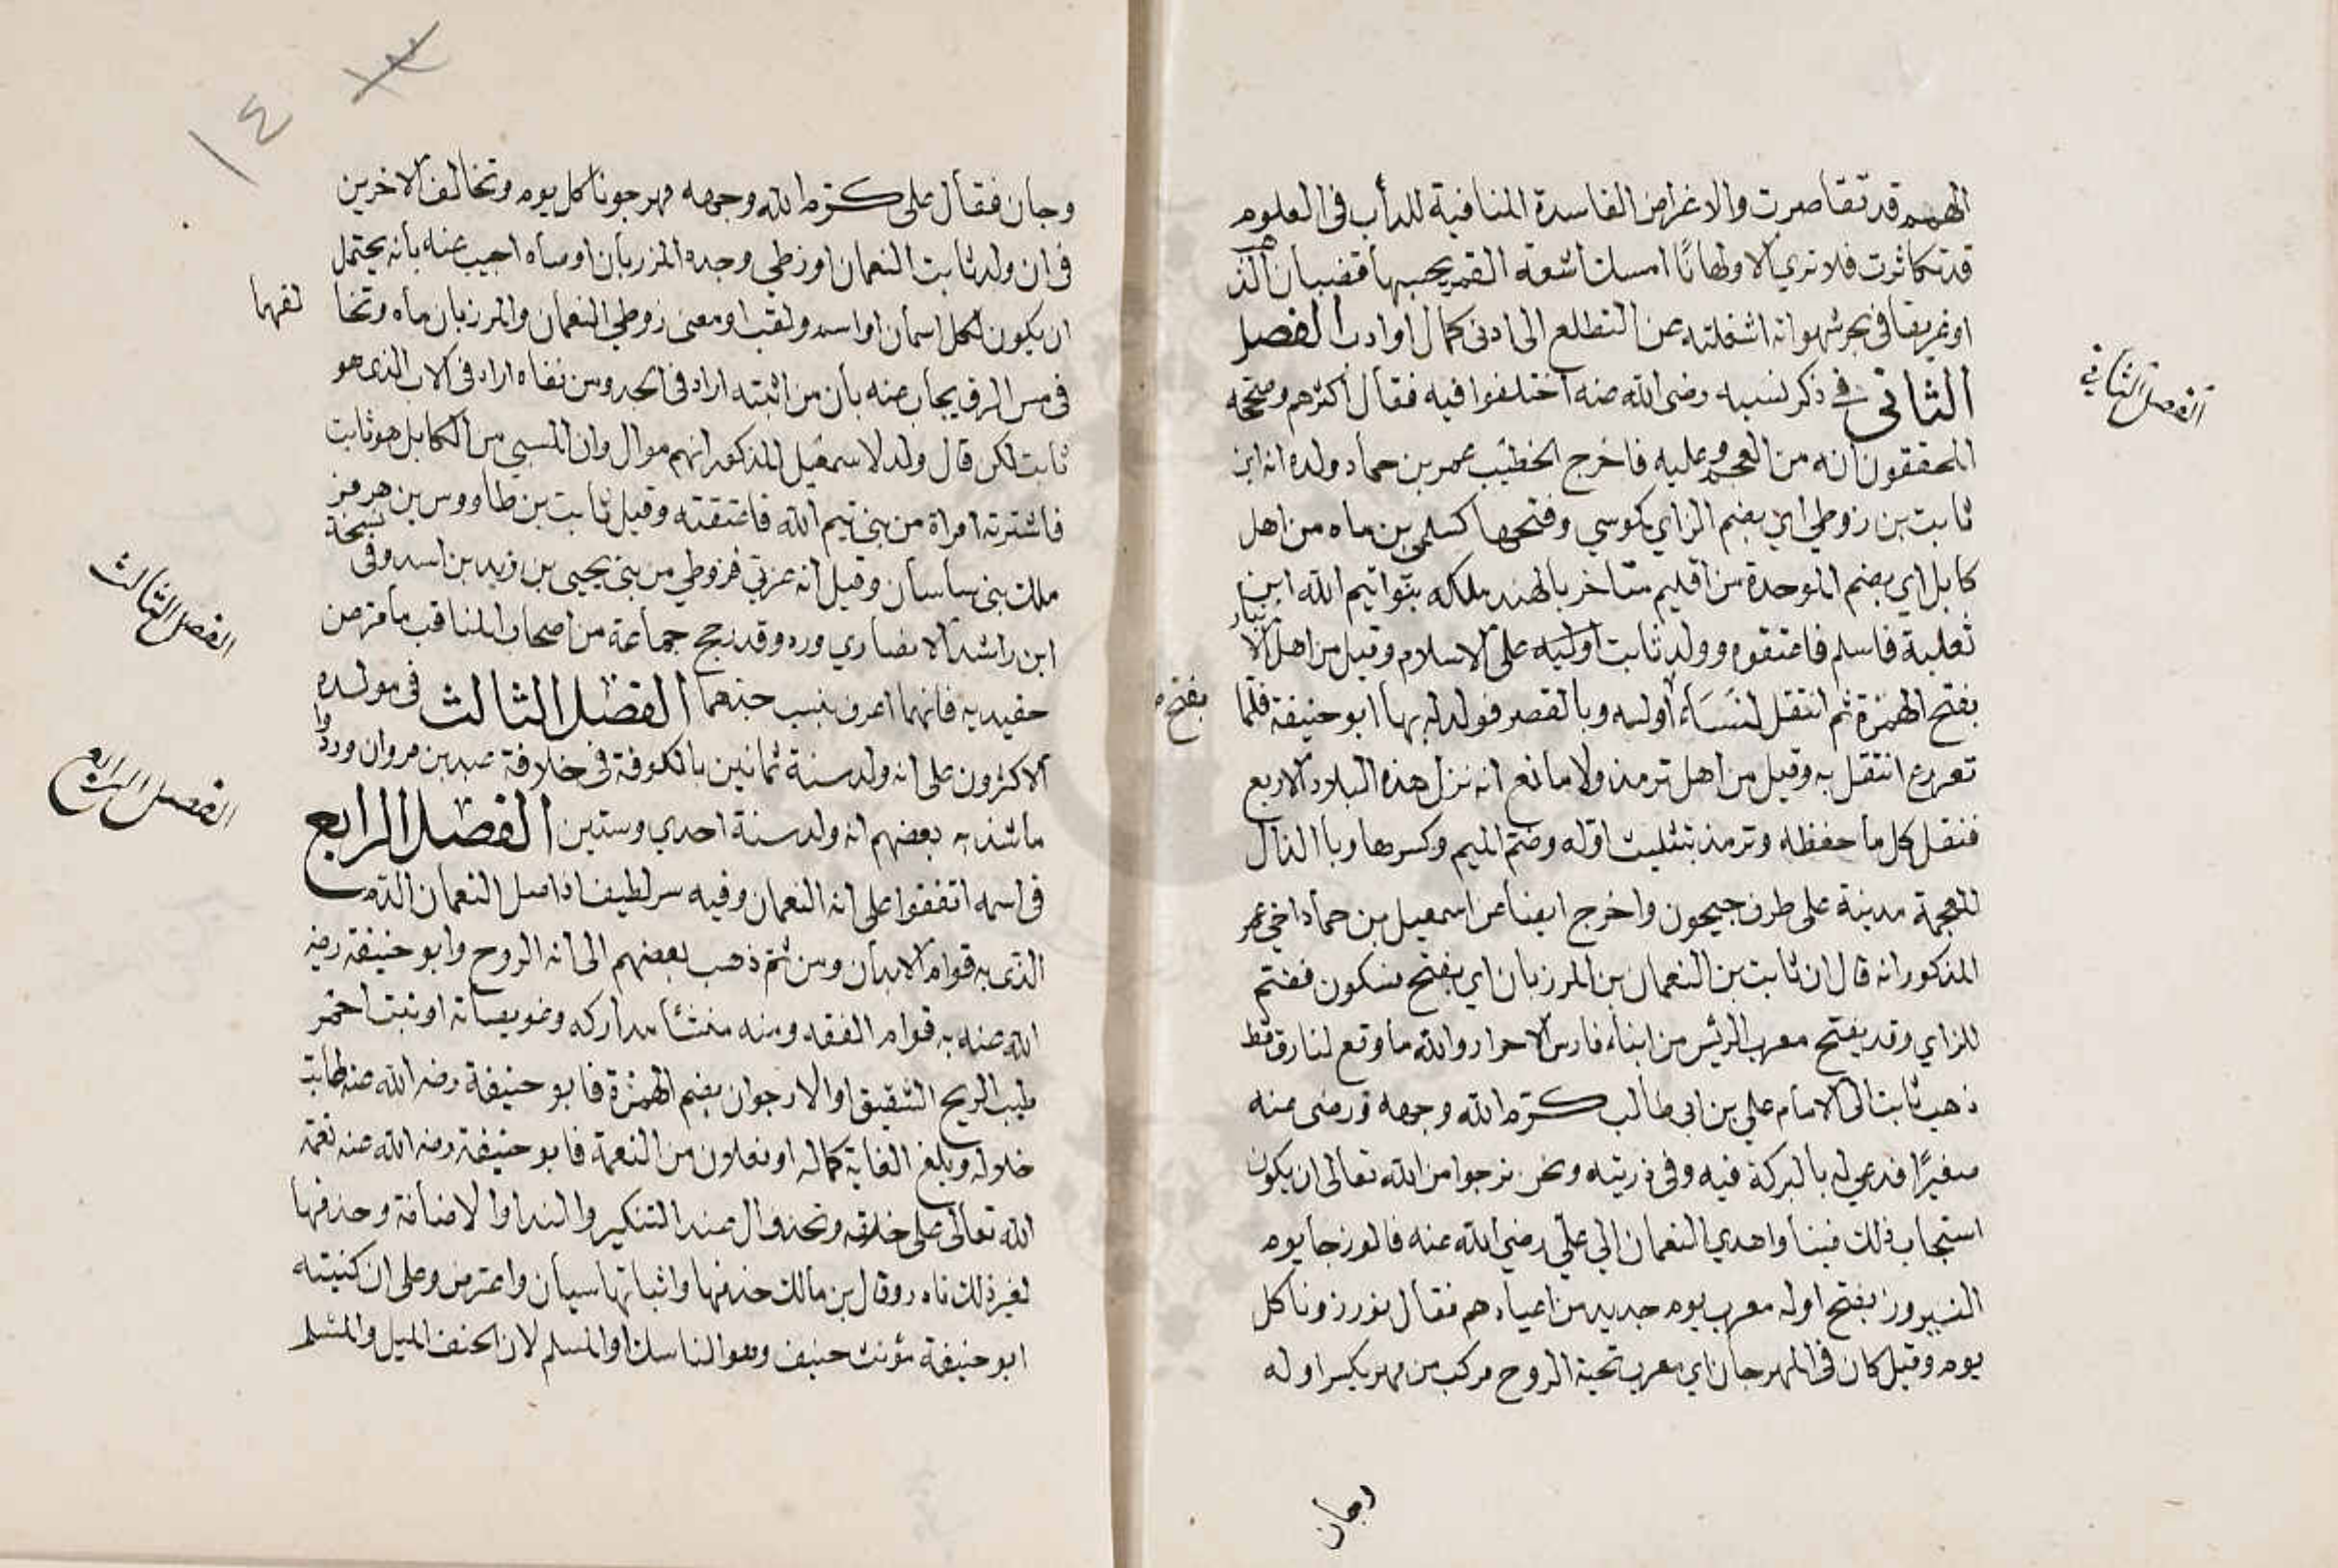 الهمم قد تقاصرت والاغراض الفاسدة المنافية للدأب في العلوم
قد تكاثرت فلا تري الا ولهانا امسك اشعة القمر يحسبها قضبان الذهب
او غريقا في بحر شهواته اشغلته عن التطلع الى ادنى كمال او ادب الفصل
الثاني في ذكر نسبه رضى الله عنه اختلفوا فيه فقال اكثرهم وصححه
المحققون انه من العجم وعليه فاخرج الخطيب عمر بن حماد ولده انه ابن
ثابت بن زوطي اي بضم الزاي كموسي وفتحها كسلمى بن ماه من اهل
كابل اي بضم الموحدة من اقليم متاخر بالهند ملكه بنوا تيم الله ابن
ثعلبة فاسلم فاعتقوه وولد ثابت اوليه على الاسلام وقيل من اهل الانبار
بفتح الهمزة ثم انتقل لنساء اوله وبالقصر فولد له بها ابو حنيفة فلما
بفتح
ترعرع انتقل به وقيل من اهل ترمذ ولا مانع انه نزل هذه البلاد الاربع
فنقل كل ما حفظه وترمذ بتثليث اوله وضم الميم وكسرها وبالذال
المعجمة مدينة على طرف جيحون واخرج ايضا عن اسمعيل بن حماد اخي عمر
المذكور انه قال ان ثابت بن النعمان بن المرزبان اي بفتح فسكون فضم
للزاي وقد يفتح معرب الرئيس من ابناء فارس الاحرار والله ما وقع لنا رق قط
ذهب ثابت الى الامام علي بن ابي طالب كرم الله وجهه ورضى عنه
صغيرًا فدعي له بالبركة فيه وفي ذريته ونحن نرجوا من الله تعالى ان يكون
استجاب ذلك فينا واهدي النعمان الي علي رضي الله عنه فالوزجا يوم
النيروز بفتح اوله معرب يوم جديد من اعيادهم فقال نورزونا كل
يوم وقيل كان في المهرجان اي معرب تحية الروح مركب من مهر بكسر اوله
وجان
الفصل الثاني
١٤
وجان فقال على كرم الله وجهه مهرجونا كل يوم وتخالف الاخرين
في ان ولد ثابت النعمان او زطي وجده المزربان او ماه اجيب عنه بأنه يحتمل
ان يكون لكل اسمان او اسم ولقب او معنى زوطي النعمان والمرزبان ماه وتخا
لفهما
في مس الرق يجاب عنه بأن من اثبته اراد في الجد ومن نفاه اراد في الاب الذى هو
ثابت لكن قال ولد لاسمعيل المذكور انهم موال وان المسبي من الكابل هو ثابت
فاشترته امراة من بني تيم الله فاعتقته وقيل ثابت بن طاووس بن هرمز
ملك بنى ساسان وقيل انه عربي فزوطي من بني يحيى بن زيد بن اسد وفى نسخة
ابن راشد الانصاري ورد وقد رجح جماعة من اصحاب المناقب ما مر عن
حفيديه فانهما اعرف بنسب جدهما الفصل الثالث في مولده
الاكثرون على انه ولد سنة ثمانين بالكوفة في خلافة عبد بن مروان وردوا
ما شذ به بعضهم انه ولد سنة احدي وستين الفصل الرابع
في اسمه اتفقوا على انه النعمان وفيه سر لطيف اذ اصل النعمان الدم
الذى به قوام الابدان ومن ثم ذهب بعضهم الى انه الروح وابو حنيفة رضي
الله عنه به قوام الفقه ومنه منشأ مداركه وعويصاته او نبت احمر
طيب الريح الشقيق او الارجوان بضم الهمزة فابو حنيفة رضي الله عنه طابت
خلاله وبلغ الغاية كماله او فعلان من النعمة فابو حنيفة رضي الله عنه نعمة
الله تعالى على خلقه وتحذف ال عند التنكير والندا والاضافة وحذفها
لغير ذلك نادر وقال بن مالك حذفها واثباتها سيان واعترض وعلى ان كنيته
ابو حنيفة مؤنث حنيف وهو الناسك او المسلم لان الحنف الميل والمسلم
الفصل الثالث
الفصل الرابع